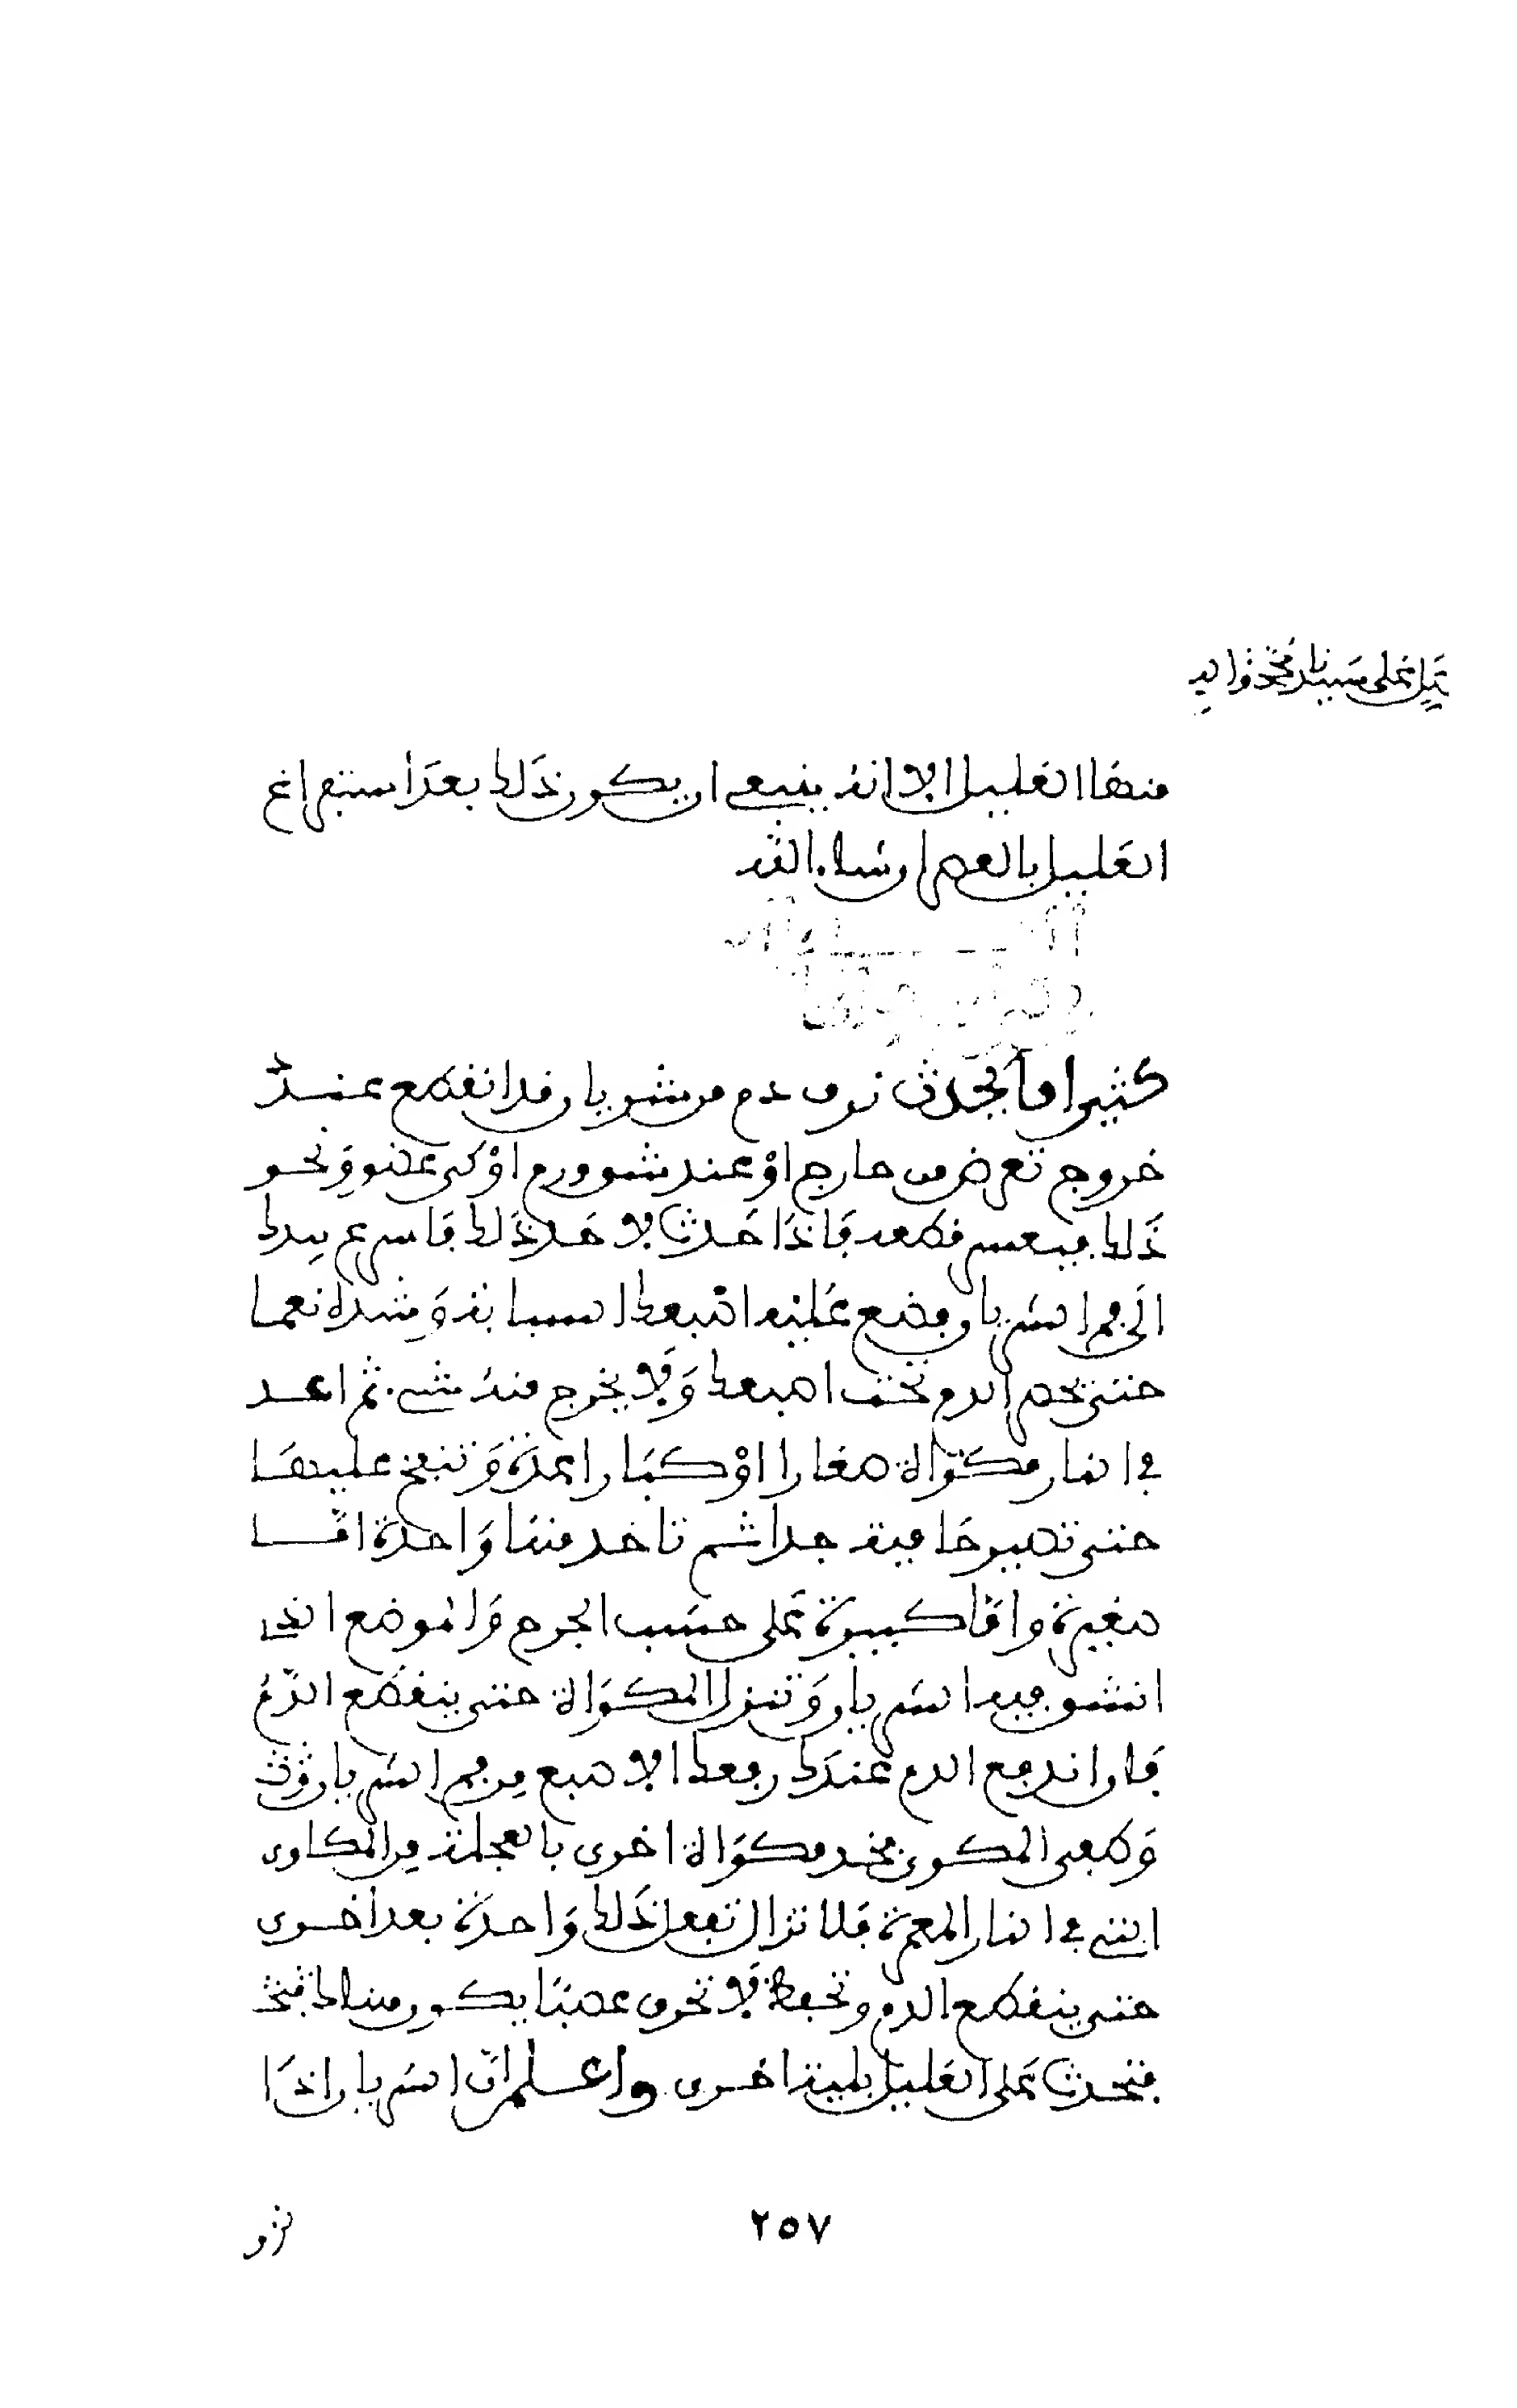 صل على سيدنا محمد واله
منها العليل الا انه ينبغي ان يكون ذلك بعد استفراغ
العليل بالفصد ان شاء الله
كثيرا ما يحدث نزف دم من شريان قد انقطع عند
خروج تعرض من خارج او عند شق ورم او كي عضو ونحو
ذلك فيعسر قطعه فاذا حدث لاحد ذلك فاسرع بيدك
الى فم الشريان وضع عليه اصبعك السبابة وشده نعما
حتى تحصر الدم تحت اصبعك ولا يخرج منه شيء ثم اعد
في النار مكواة صغارا او كبارا عدة وتنفخ عليها
حتى تصير حامية جدا ثم تاخذ منها واحدة اما
صغيرة واما كبيرة على حسب الجرح والموضع الذي
انشق فيه الشريان وتنزل المكواة حتى ينقطع الدم
فان اندفع الدم عندك رفعك الاصبع من فم الشريان
وطفى المكوى فخذ مكواة اخرى بالعجلة من المكاوى
التي في النار المعدة فلا تزال تفعل ذلك واحدة بعد اخرى
حتى ينقطع الدم وتحفظ لا تحرق عصبا يكون هنالك
فتحدث على العليل بلية اخرى واعلم ان الشريان اذا
٢٥٧
نزف